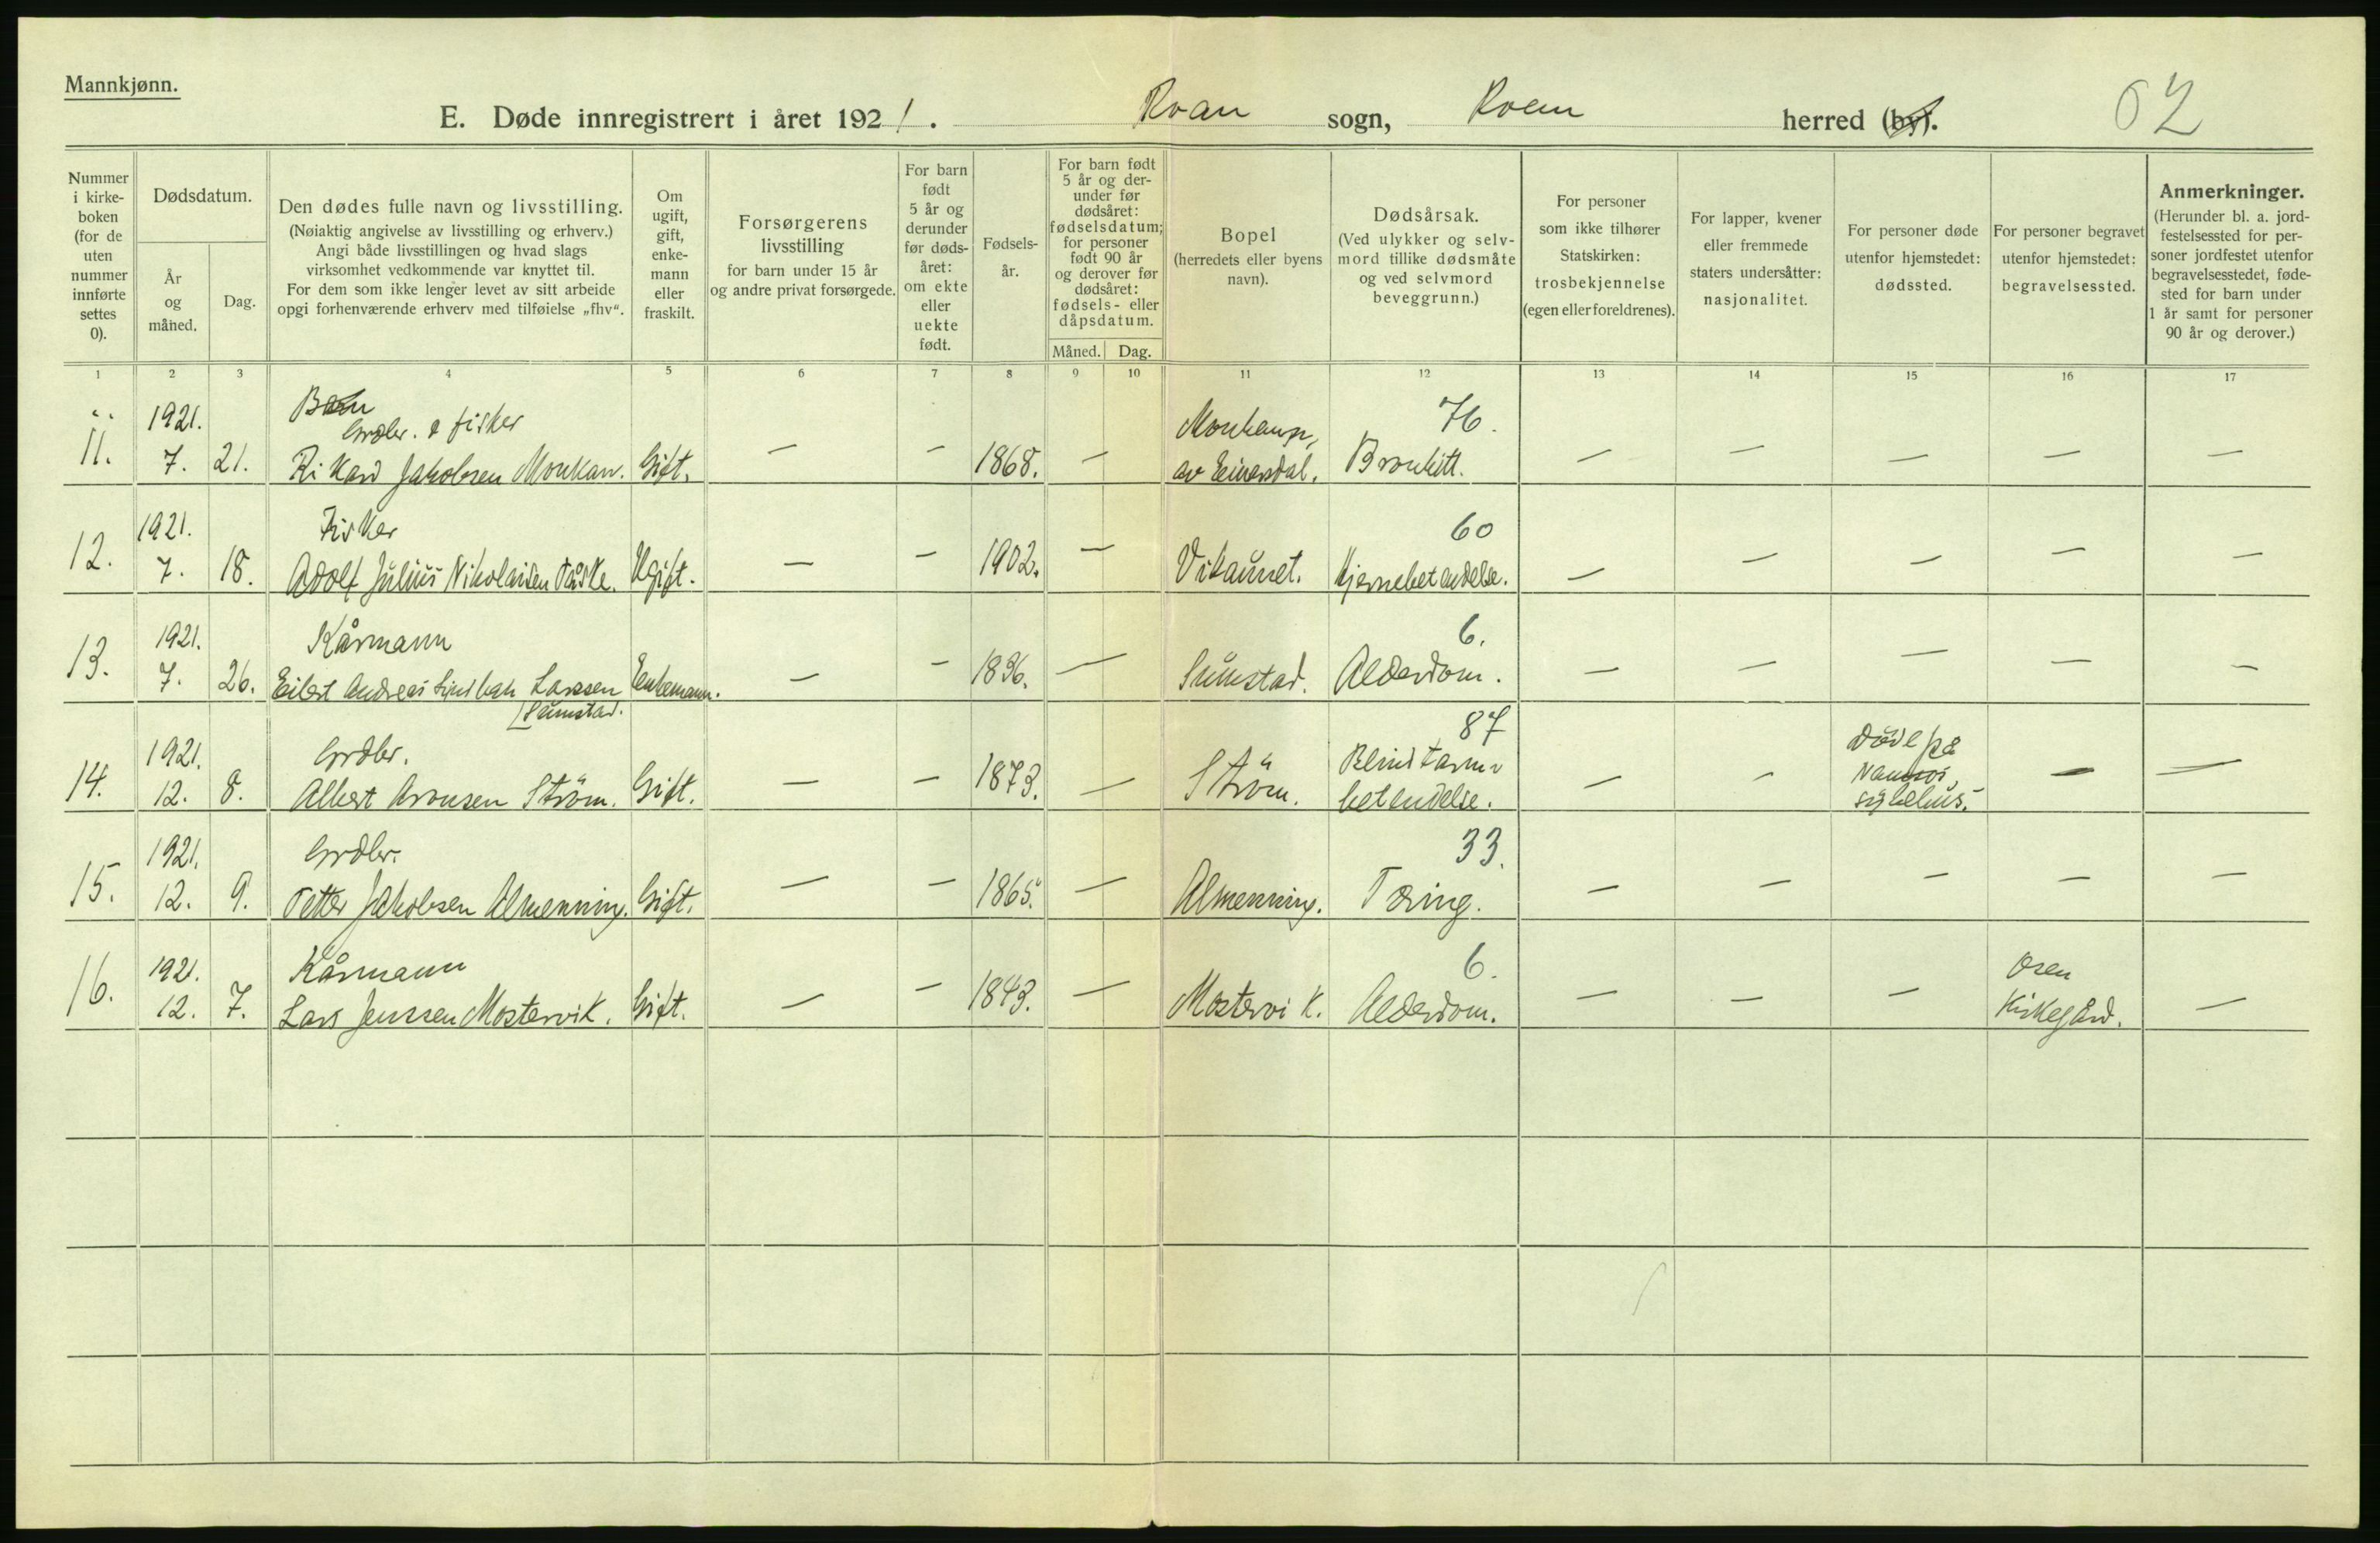 Mannkjønn.
E. Døde innregistrert i året 1921. Roan sogn, Roan herred (by).
62
Nummer i kirkeboken (for de uten nummer innførte settes 0).
Dødsdatum.
År og måned.
Dag.
Den dødes fulle navn og livsstilling.
(Nøiaktig angivelse av livsstilling og erhverv.)
Angi både livsstillingen og hvad slags
virksomhet vedkommende var knyttet til.
For dem som ikke lenger levet av sitt arbeide
opgi forhenværende erhverv med tilføielse „fhv“.
Om ugift, gift, enkemann eller fraskilt.
Forsørgerens
livsstilling
for barn under 15 år
og andre privat forsørgede.
For barn født 5 år og derunder før dødsåret: om ekte eller uekte født.
Fødselsår.
For barn født 5 år og derunder før dødsåret: fødselsdatum; for personer født 90 år og derover før dødsåret: fødsels- eller dåpsdatum.
Måned. Dag.
Bopel
(herredets eller byens navn).
Dødsårsak.
(Ved ulykker og selvmord tillike dødsmåte og ved selvmord beveggrunn.)
For personer som ikke tilhører Statskirken: trosbekjennelse (egen eller foreldrenes).
For lapper, kvener eller fremmede staters undersåtter: nasjonalitet.
For personer døde utenfor hjemstedet: dødssted.
For personer begravet utenfor hjemstedet: begravelsessted.
Anmerkninger.
(Herunder bl. a. jordfestelsessted for personer jordfestet utenfor begravelsesstedet, fødested for barn under 1 år samt for personer 90 år og derover.)
1 2 3 4 5 6 7 8 9 10 11 12 13 14 15 16 17
1921. Grdbr. & fisker 76.
11. 7. 21. Rikard Jakobsen Monkan. Gift. — — 1868. — av Einarsdal. Bronkitt. — — — — —
1921. Fisker 60
12. 7. 18. Adolf Julius Nikolaisen Påske. Ugift. — — 1902. — Vikaunet. Hjernebetendelse. — — — — —
1921. Kårmann 6.
13. 7. 26. Eilert Andreas Larssen Enkemann. — — 1836. — Sumstad. Alderdom. — — — — —
Sumstad.
1921. Grdbr. 87 Blindtarm- Døde på
14. 12. 8. Albert Aronsen Ström. Gift. — — 1873. — Ström. betendelse. — — Namsos sykehus. — —
1921. Grdbr. 33.
15. 12. 9. Petter Jakobsen Almenning. Gift. — — 1865. — Almenning. Tæring. — — — — —
1921. Kårmann 6. Osen
16. 12. 7. Lars Jenssen Mostervik. Gift. — — 1843. — Mostervik. Alderdom. — — — Kirkegård. —